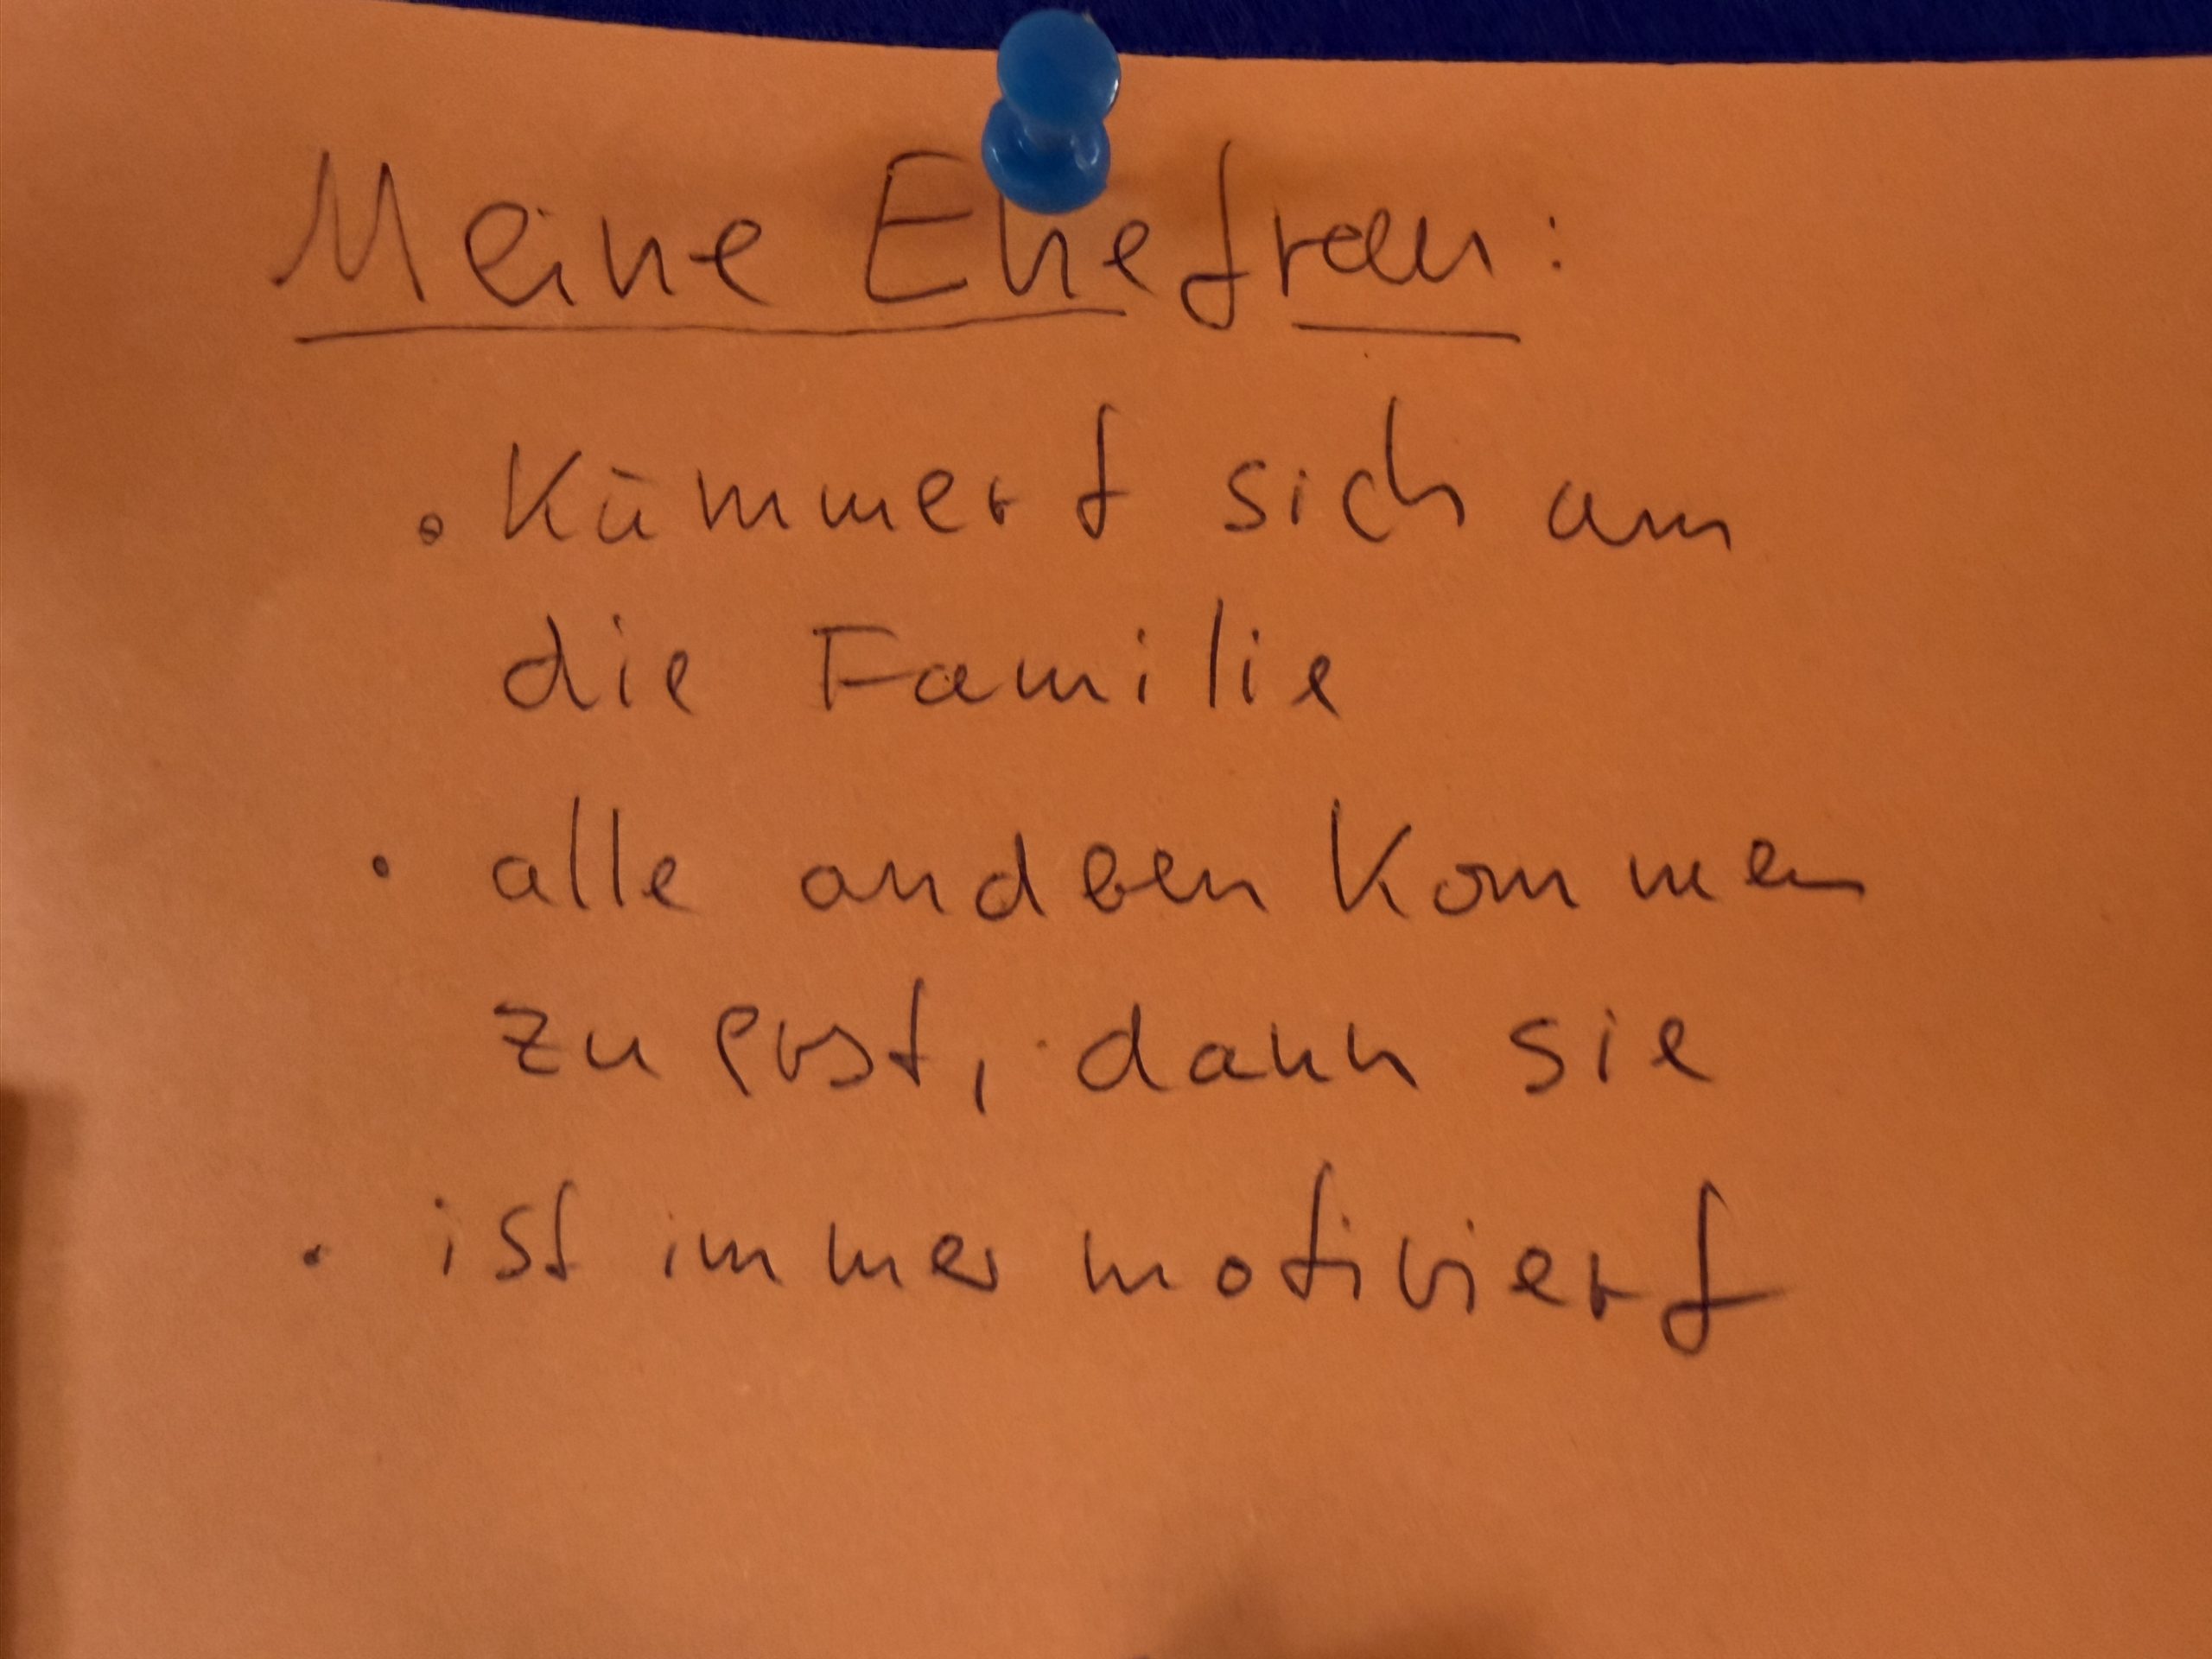 Meine Ehefrau:
• Kümmert sich um
die Familie
• alle anderen kommen
zuerst, dann sie
• ist immer motiviert